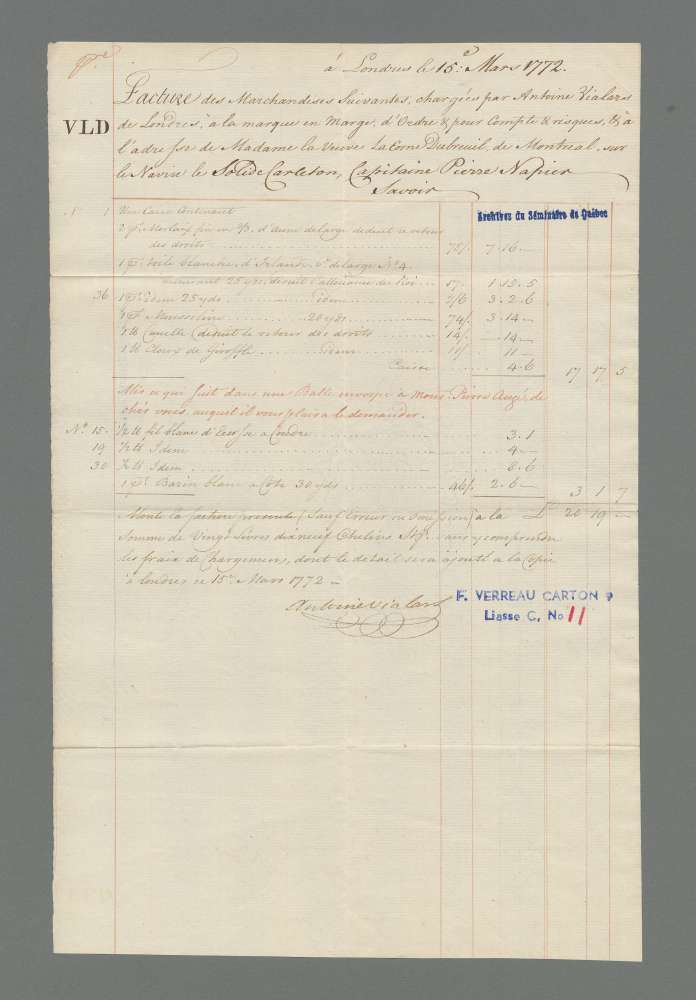 à Londres le 15.e Mars 1772.
Facture des Marchandises Suivantes, chargées par Antoine Vialars
VLD
de Londres, à la marque en Marge, d'Ordre & pour Compte & risques, & à
l'adresse de Madame la Veuve LaCorne Dubreuil, de Montreal, sur
le Navire le Solide Carleton, Capitaine Pierre Napier
Savoir
Archives du Séminaire de Québec
N° 1 Une Caisse Contenant
2 ps. fin en 2/3. d'aune de large deduit le retour
des droits 78/. 7.16.—
1 ps. toile blanche d'Irlande de large N° 4.
25 yds. deduit 17. 1.19.5
36 1 ps. idem 25 yds idem 2/6 3.2.6
1 ps. Mousseline 20 yds 74/. 3.14—
1 tt Canelle (deduit le retour des droits 14/. —.14—
1 tt Cloux de Giroffle idem 11/. 11—
Caisse 4.6 17 17 5
Plus ce qui suit dans une Balle envoyée à Mons. Pierre Augé, de
chés vous, auquel il vous plaira le demander.
N° 15. ½ tt fil blanc d'Ecosse a Coudre 3.1
19 ½ tt Idem 4—
30 ½ tt Idem 8.6
1 ps. Bazin blanc a Côte 30 yds 46/. 2.6— 3 1 7
Monte la facture presente (Sauf Erreur ou omission) a la L 20 19 —
Somme de Vingt Livres dixneuf Chelins Stg. sans y comprendre
les fraix de Chargement, dont le detail sera ajouté a la Copie
à Londres ce 15.e Mars 1772 —
Antoine Vialars
F. VERREAU CARTON 9
Liasse C, No 11